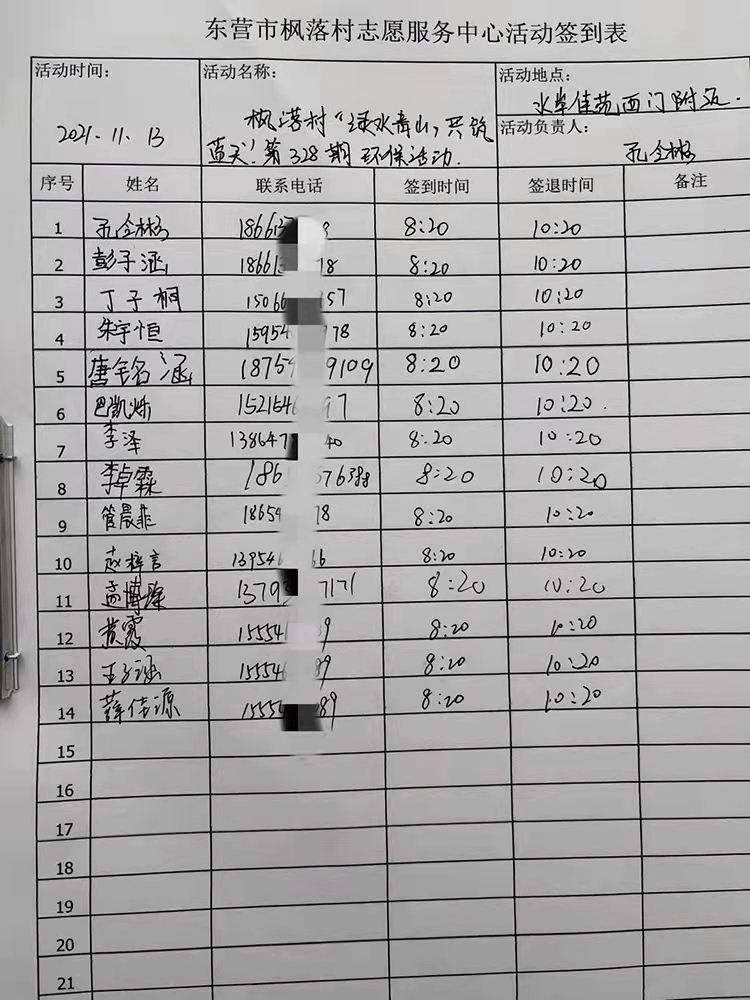 东营市枫落村志愿服务中心活动签到表
活动时间: 活动名称: 活动地点:
2021.11.13 枫落村“绿水青山,共筑 水岸佳苑西门附近.
蓝天”第328期环保活动. 活动负责人:
孔令彬
序号 姓名 联系电话 签到时间 签退时间 备注
1 孔令彬 186613 8 8:20 10:20
2 彭子涵 18661 78 8:20 10:20
3 丁子桐 15066 57 8:20 10:20
4 朱宇恒 15954 78 8:20 10:20
5 唐铭涵 18754 9109 8:20 10:20
6 巴凯烁 1521546 97 8:20 10:20.
7 李泽 138647 40 8:20 10:20
8 李卓霖 186 76388 8:20 10:20
9 管晨菲 18654 78 8:20 10:20
10 赵梓言 139546 66 8:20 10:20
11 孟博 1379 7171 8:20 10:20
12 黄霞 155546 89 8:20 10:20
13 王子涵 155546 89 8:20 10:20
14 薛佳源 15554 89 8:20 10:20
15
16
17
18
19
20
21